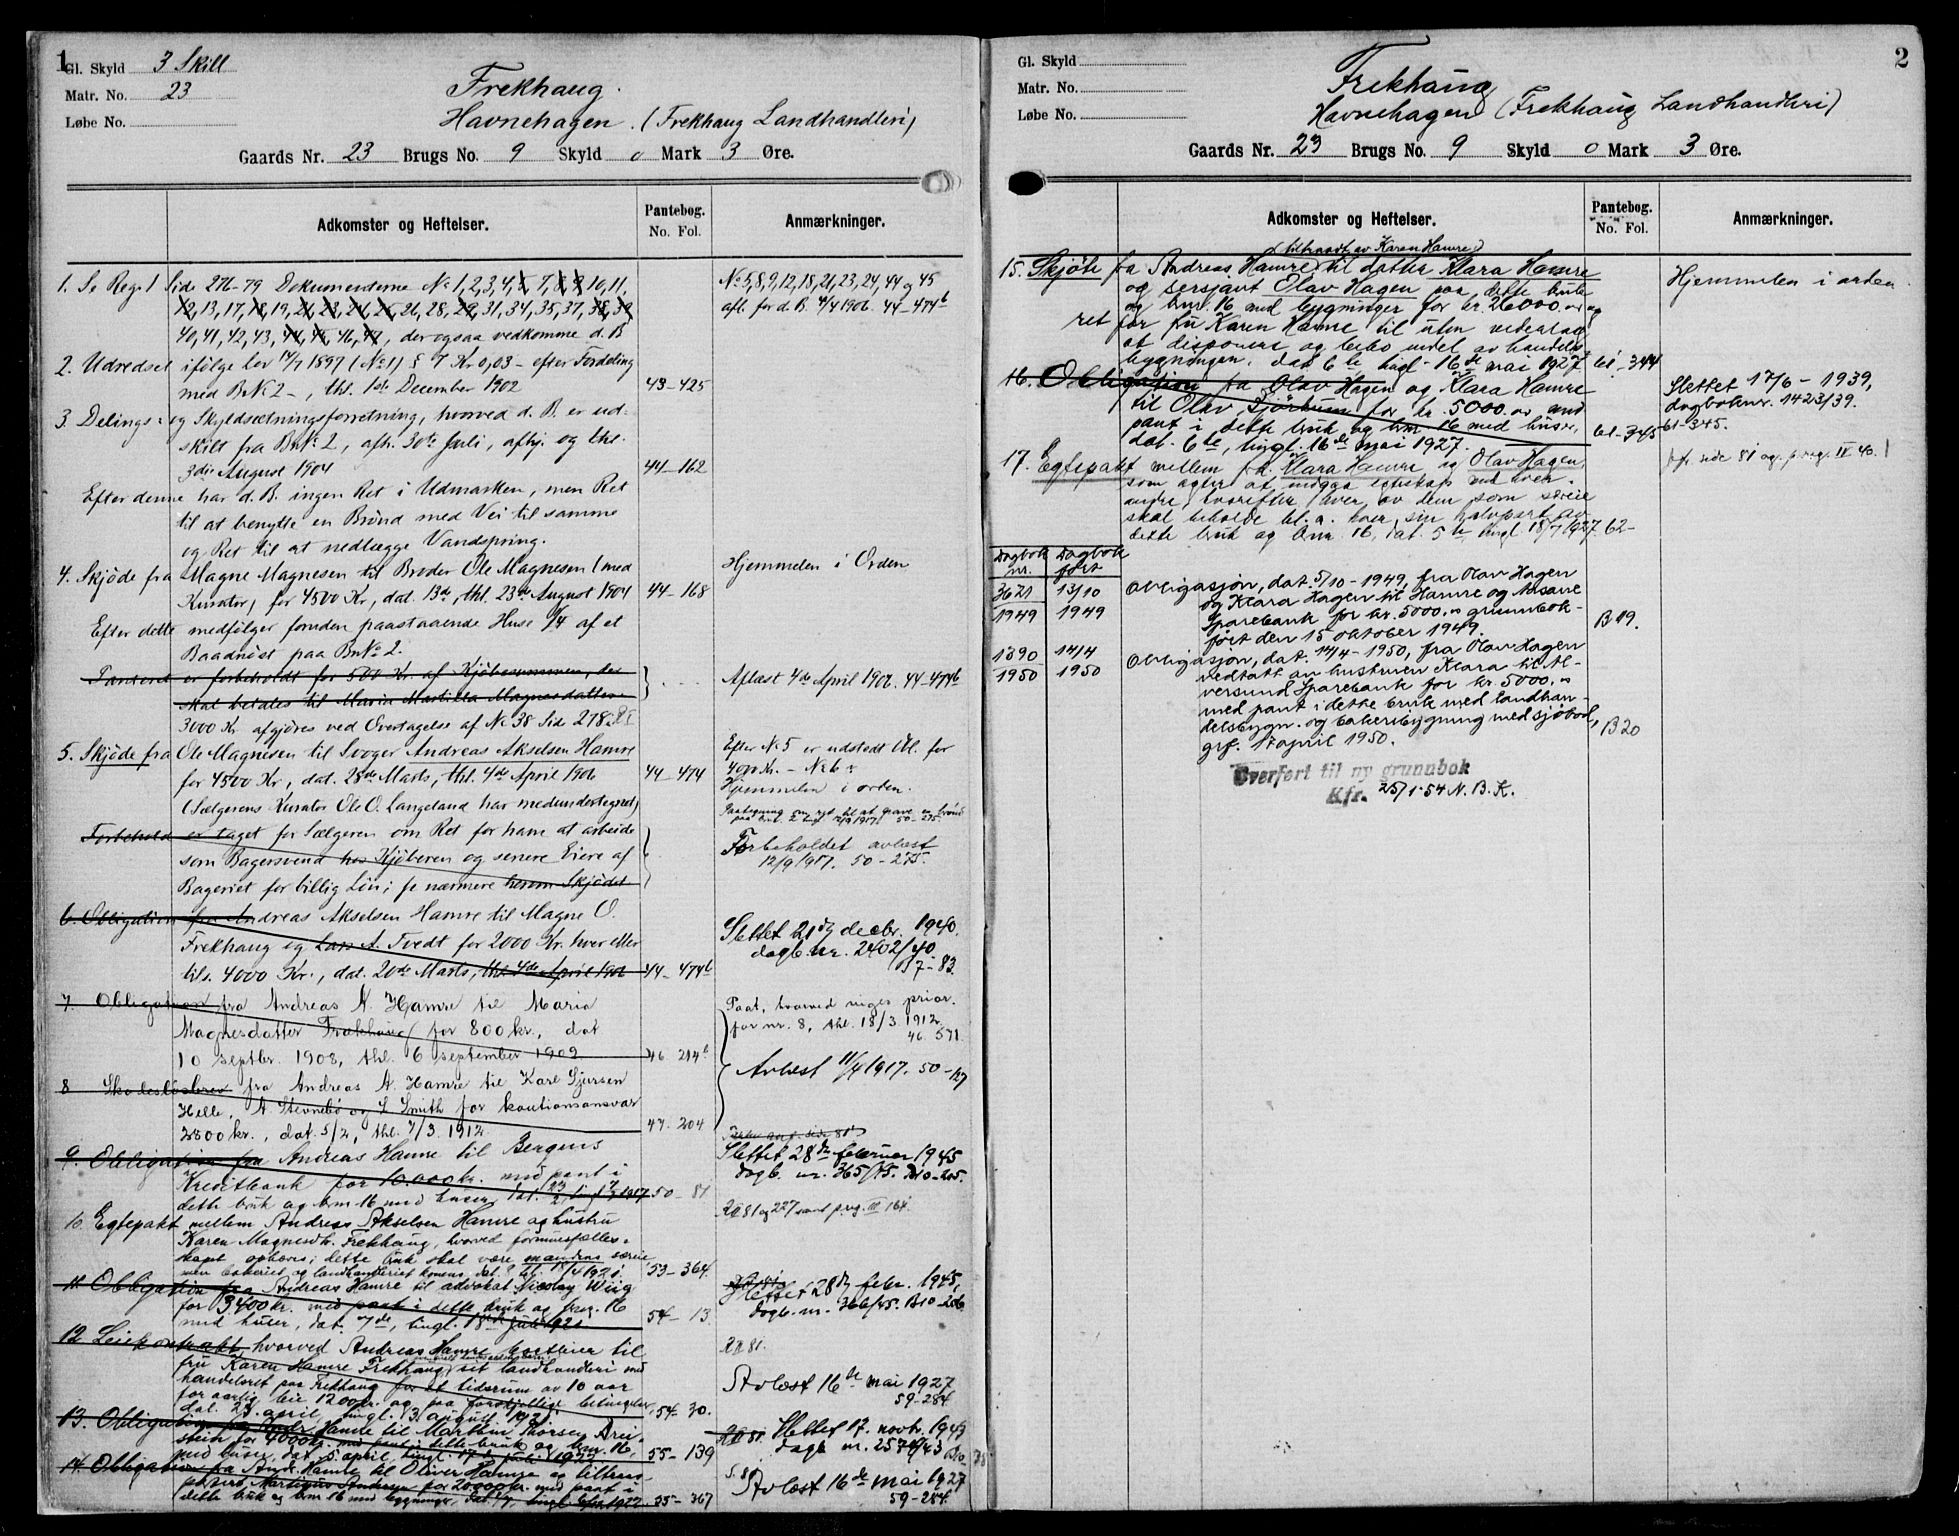 1
Gl. Skyld 3 Skill
Matr. No. 23
Løbe No.
Frekhaug.
Havnehagen. (Frekhaug Landhandleri)
Gaards Nr. 23 Brugs No. 9 Skyld 0 Mark 3 Øre.
Adkomster og Heftelser.
Pantebog.
No. Fol.
Anmærkninger.
1. Se Reg. 1 Side 276-79 Dokumenterne No 1, 2, 3, 4, 7, 10, 11,
12, 13, 17, 18, 19, 21, 23, 24, 25, 26, 28, 29, 31, 34, 35, 37, 38, 39
40, 41, 42, 43, 44, 45, 46, 47, der ogsaa vedkomme d. B.
No 5, 8, 9, 12, 18, 21, 23, 24, 44 og 45
afl. for d. B. 4/4 1906. 44-474b
2. Udredsel ifølge lov 14/7 1897 (No 1) § 7 Kr 0,03 - efter Fordeling
med BNo 2 -, thl. 1ste December 1902 43-425
3. Delings- og Skyldsætningsforretning, hvorved d. B. er ud-
skilt fra BNo 2, afh. 30te Juli, afhj. og thl.
3die August 1904 44-162
Efter denne har d. B. ingen Ret i Udmarken, men Ret
til at benytte en Brønd med Vei til samme
og Ret til at nedlægge Vandspring.
4. Skjøde fra Magne Magnesen til Broder Ole Magnesen (med
Kurator) for 4500 Kr, dat. 13de, thl. 23de August 1904 44-168
Hjemmelen i Orden
Efter dette medfølger foruden paastaaende Huse 1/4 af et
Baadnøst paa BNo 2.
Panteret er forbeholdt for 500 Kr. af Kjøbesummen, der
skal betales til Maria Martilla Magnesdatter
Aflæst 4de April 1906. 44-474b
3000 Kr afgjøres ved Overtagelse af No 38 Side 278
5. Skjøde fra Ole Magnesen til Svoger Andreas Akselsen Hamre
for 4500 Kr, dat. 28de Marts, thl. 4de April 1906 44-474
(Sælgerens Kurator Ole O. Langeland har medundertegnet)
Efter No 5 er udstedt Obl. for
4000 Kr. - No 6
Hjemmelen i orden.
Forbehold er taget for Sælgeren om Ret for ham at arbeide
som Bagersvend hos Kjøberen og senere Eiere af
Bageriet for billig Løn; se nærmere herom Skjødet
Forbeholdet avlæst
12/9 1917. 50-275.
6. Obligation fra Andreas Akselsen Hamre til Magne O.
Frekhaug og Lars A. Tvedt for 2000 Kr. hver eller
tils. 4000 Kr., dat. 20de Marts, thl. 4de April 1906 44-474b
Slettet 21de decbr. 1940.
dagb. nr. 2402/40.
B7-83.
7. Obligation fra Andreas A. Hamre til Maria
Magnesdatter Frekhaug for 800 kr., dat
10 septbr. 1908, thl 6 september 1909 46 214b
Paat. hvorved viges prior.
for nr. 8, thl. 18/3 1912
46. 571.
Avlæst 11/4 1917. 50-127
8 Skadesløsbrev fra Andreas A. Hamre til Karl Sjursen
Helle, A Stevnebø og L Smith for kautionsansvar
2800 kr., dat. 5/2, thl. 7/3 1912 47. 204
9. Obligation fra Andreas Hamre til Bergens
Kreditbank for 10.000 kr. med pant i
dette bruk og brnr 16 med huser, dat. 23/2, tingl. 7/3 1917 50-81
Slettet 28de februar 1945
dagb. nr. 365/45. B10-205.
10. Egtepakt mellem Andreas Akselsen Hamre og hustru
Karen Magnesdtr. Frekhaug, hvorved formuesfælles-
skapet ophæves; dette bruk skal være mandens særeie
53-364.
11. Obligation fra Andreas Hamre til advokat Nicolay Wiig
for 3400 kr. med pant i dette bruk og brnr. 16
med huser, dat. 7de, tingl. 18de juli 1921. 54-13
Slettet 28de febr. 1945,
dagb. nr. 366/45. B10-206
12 Leiekontrakt, hvorved Andreas Hamre bortleier til
fru Karen Hamre Frekhaug sit landhandleri med
handelsret paa Frekhaug for et tidsrum av 10 aar
for aarlig leie 1200 kr. og paa forøvrig betingelser,
dat. 23. april, tingl. 13. august 1921. 54-30.
Avlæst 16de mai 1927
59-284.
13. Obligation fra Andr. Hamre til Martin Thorsen Arei-
stein for 4000 kr. med pant i dette bruk og brnr. 16,
med huser, dat. 5. april, tingl. juli 1922 55-139
Slettet 17. novbr. 1943
dagb nr. 2574/43
14. Obligation fra Andr. Hamre til Oliver Hamre og
for 20.000 kr. med pant i
dette bruk og brnr 16 med bygninger, 55-367
Avlæst 16de mai 1927
59-284.
2
Gl. Skyld
Matr. No.
Løbe No.
Frekhaug
Havnehagen (Frekhaug Landhandleri)
Gaards Nr. 23 Brugs No. 9 Skyld 0 Mark 3 Øre.
Adkomster og Heftelser.
Pantebog.
No. Fol.
Anmærkninger.
(tiltraadt av Karen Hamre)
15. Skjøte fra Andreas Hamre til datter Klara Hamre
og sersjant Olav Hagen paa dette bruk
og brnr. 16 med bygninger for kr. 26000.00 og
ret for fru Karen Hamre til uten vederlag
at disponere og bebo endel av handels-
bygningen, dat 6te, tingl. 16de mai 1927 61-344
Hjemmelen i orden.
16. Obligation fra Olav Hagen og Klara Hamre
til Olav Sjørtun for kr. 5000.00 med
pant i dette bruk og brnr. 16 med huser,
dat. 6te, tingl. 16de mai 1927. 61-345
Slettet 17/6-1939,
dagboknr. 1423/39.
61-345.
17. Egtepakt mellem frk. Klara Hamre og Olav Hagen,
som agter at indgaa egteskap med hver-
andre, hvorefter hver av dem som særeie
skal beholde bl. a. hver sin halvpart av
dette bruk og brnr 16, dat. 5te tingl 18/7 1927. 62-
Dagbok nr. Dagbok ført
3621 13/10
1949 1949
Obligasjon, dat. 5/10-1949, fra Olav Hagen
og Klara Hagen til Hamre og Aasane
Sparebank for kr. 5000.00 grunnbok-
ført den 15 oktober 1949. B19.
1390 14/4
1950 1950
Obligasjon, dat. 14/4-1950, fra Olav Hagen
vedtatt av hustruen Klara til Al-
versund Sparebank for kr. 5000.00
med pant i dette bruk med landhan-
delsbygn. og bakeribygning med sjøbod,
grf. 17 april 1950. B20
Overført til ny grunnbok
Kfr. 25/1-54 N. B. K.